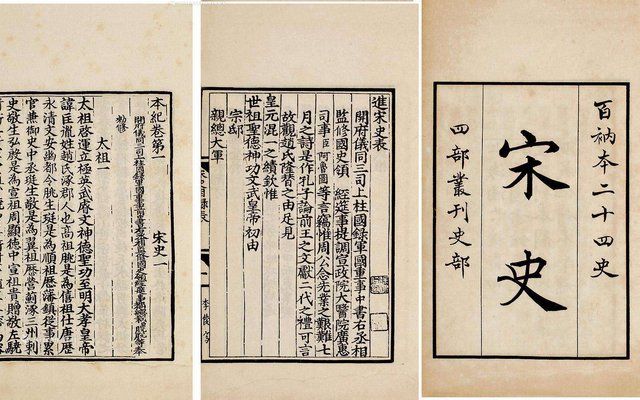 百衲本二十四史
宋史
四部叢刊史部
進宋史表
開府儀同三司上柱國錄軍國重事中書右丞相
監修國史領 經筵事提調宣政院太醫院廣惠
司事臣阿魯圖等言竊惟周公念先業之艱難七
月之詩是作孔子論前王之文獻二代之禮可言
故觀趙氏隆替之由足見
皇元混一之績欽惟
世祖聖德神功文武皇帝初由
宗邸
親總大軍
本紀卷第一 宋史一
開府儀同三司上柱國錄軍國重事
勑修
太祖一
太祖啓運立極英武睿文神德聖功至明大孝皇帝
諱匡胤姓趙氏涿郡人也高祖朓是為僖祖仕唐歷
永清文安幽都令朓生珽是為順祖歷藩鎮從事累
官兼御史中丞珽生敬是為翼祖歷營薊涿三州刺
史敬生弘殷是為宣祖周顯德中宣祖貴贈敬左驍